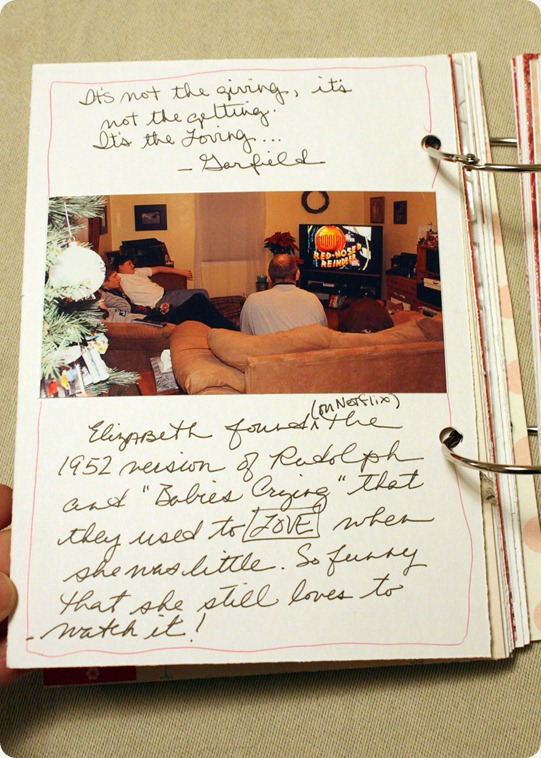 It's not the giving, it's
not the getting.
It's the Loving...
- Garfield
RED-NOSED
REINDEER
(on Netflix)
Elizabeth found ^ the
1952 version of Rudolph
and "Babies Crying" that
they used to LOVE when
she was little. So funny
that she still loves to
watch it!